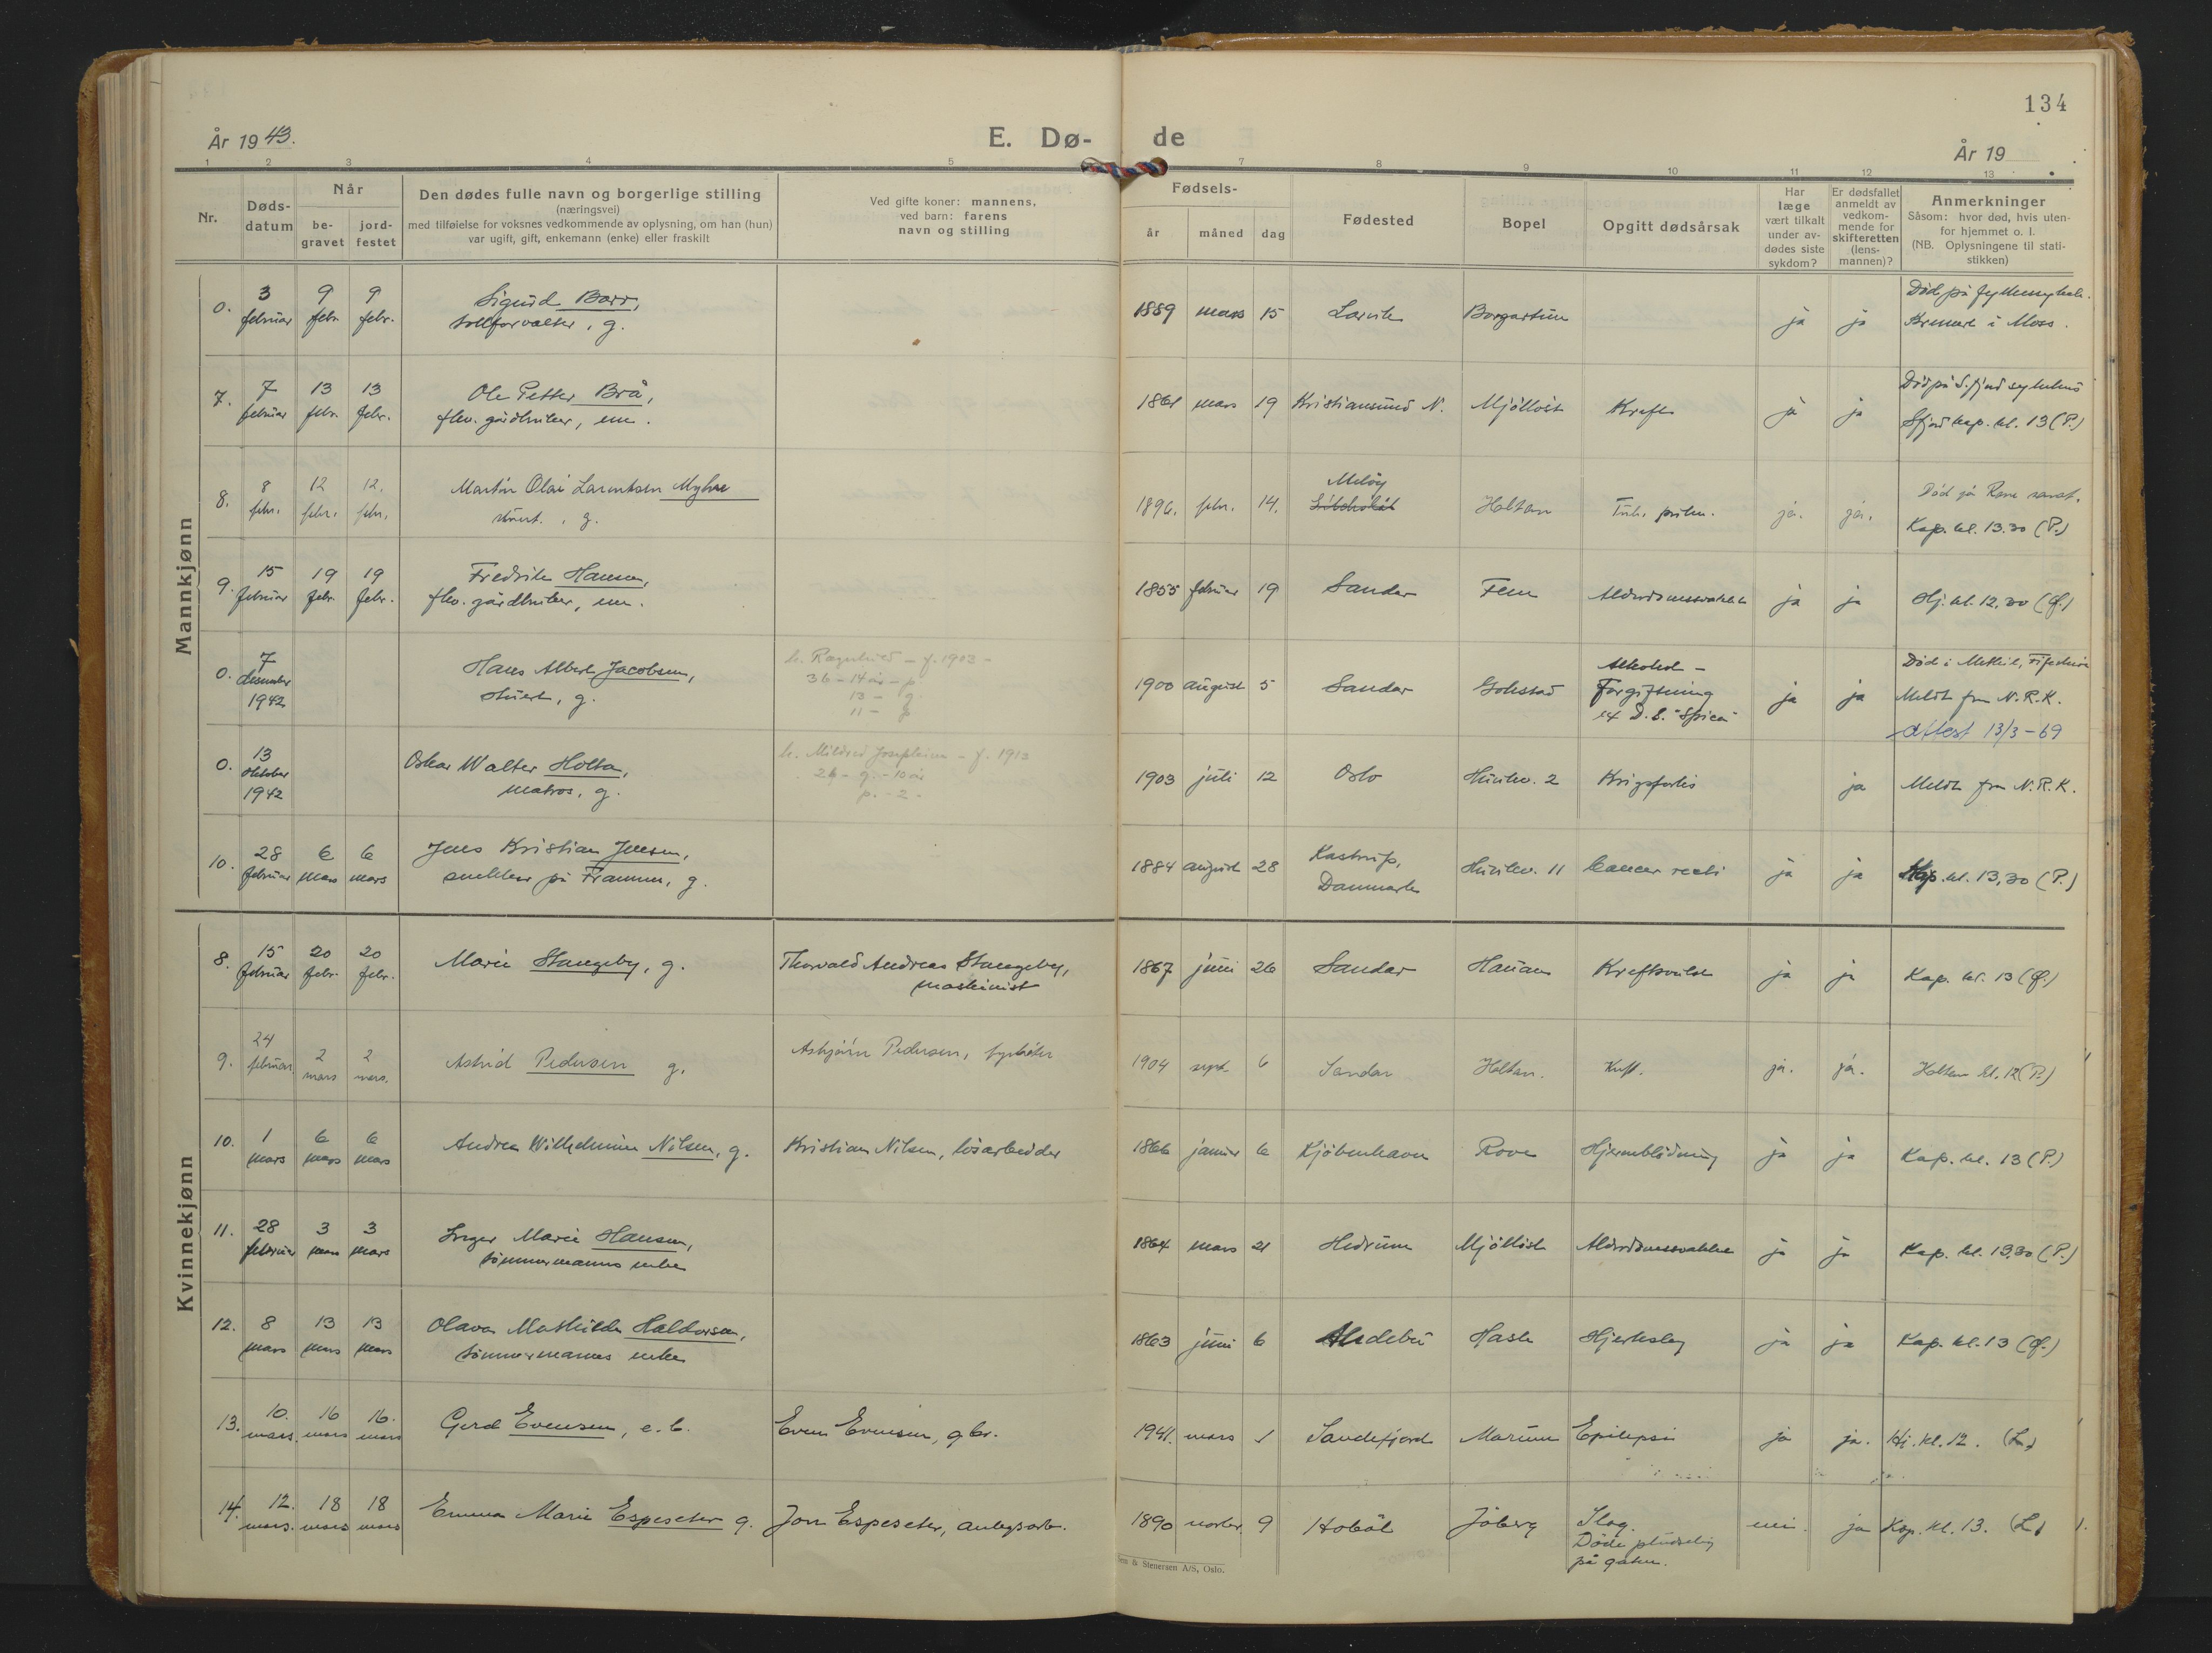 134
År 1943.
E. Dø- de
År 19
1 2 3 4 5 7 8 9 10 11 12 13
Nr.
Døds-
datum
Når
be-
gravet
jord-
festet
Den dødes fulle navn og borgerlige stilling
(næringsvei)
med tilføielse for voksnes vedkommende av oplysning, om han (hun)
var ugift, gift, enkemann (enke) eller fraskilt
Ved gifte koner: mannens,
ved barn: farens
navn og stilling
Fødsels-
år måned dag
Fødested
Bopel
Opgitt dødsårsak
Har
læge
vært tilkalt
under av-
dødes siste
sykdom?
Er dødsfallet
anmeldt av
vedkom-
mende for
skifteretten
(lens-
mannen)?
Anmerkninger
Såsom: hvor død, hvis uten-
for hjemmet o. l.
(NB. Oplysningene til stati-
stikken)
Mannkjønn
0. 3 9 9 Sigurd Barr, 1889 mars 15 Larvik Borgartun ja ja Død på fylkessykeh.
februar febr. febr. tollforvalter, g. Kremert i Moss.
7. 7 13 13 Ole Petter Brå, 1861 mars 19 Kristiansund N. Mjölløst Kreft ja ja Död på S.fjord sykehus
februar febr. febr. fhv. gårdbruker, em. Sfjord kap. kl. 13 (P.)
8. 8 12 12. Martin Olai Larentsen Myhre 1896. febr. 14. Meløy Holtan Tub. pulm. ja. ja. Død på sanat.
febr. febr. febr. stuert., g. Kap. kl. 13.30 (P.)
9. 15 19 19 Fredrik Hansen, 1855 februar 19 Sandar Fem Alderdomssvakhet ja ja Hj. kl. 12,30 (Ø.)
februar febr. febr. fhv. gårdbruker, em.
0. 7 Hans Albert Jacobsen, h. Ragnhild – f. 1903 – 1900 august 5 Sandar Gokstad Alkohol – ja ja Död i Methil,
desember stuert, g. 36 – 14 år – p. Forgiftning Meldt fra N.R.K.
1942 13 – g. D.S. "Spica" Attest 13/3-69
11 – p.
0. 13 Oskar Walter Holta, h. Mildred Josephine – f. 1913 1903 juli 12 Oslo Huvikv. 2 Krigsforlis ja Meldt fra N.R.K.
oktober matros, g. – g. – 10 år
1942 p. – 2 –
10. 28 6 6 Jens Kristian Jensen, 1884 august 28 Kastrup, Huvikv. 11 Cancer recti ja ja Kap. kl. 13,30 (P.)
februar mars mars snekker på Framnes, g. Danmark
Kvinnekjønn
8. 15 20 20 Marie Stangeby, g. Thorvald Andreas Stangeby, 1867 juni 26 Sandar Hauan Kreftsvulst ja ja Kap. kl. 13 (Ø.)
februar febr. febr. maskinist
9. 24 2 2 Astrid Pedersen g. Asbjørn Pedersen, fyrbøter 1904 sept. 6 Sandar Holtan. Kreft. ja. ja. Holtan kl. 12 (P.)
februar. mars mars.
10. 1 6 6 Andrea Wilhelmine Nilsen, g. Kristian Nilsen, løsarbeider 1866 januar 6 Kjöbenhavn Rove Hjerneblödning ja ja Kap. kl. 13 (P.)
mars mars mars
11. 28 3 3 Inger Marie Hansen, 1864 mars 21 Hedrum Mjölløst Alderdomssvakhet ja ja Kap. kl. 13,30 (P.)
februar mars mars tömmermanns enke
12. 8 13 13 Olava Mathilde Haldorsen, 1863 juni 6 Andebu Hasle Hjerteslag ja ja Kap. kl. 13 (Ø.)
mars mars mars tömmermanns enke
13. 10. 16 16. Gerd Evensen, e.b. Even Evensen, gbr. 1941. mars 1 Sandefjord Marum Epilepsi ja ja. Hj. kl. 12. (L.)
mars. mars mars
14. 12. 18 18 Emma Marie Espeseter g. Jon Espeseter, anlegsarb. 1890 novbr. 9 Hobøl Jåberg Slag. nei. ja Kap. kl. 13. (L.)
mars. mars mars Døde plutselig
på gaten.
Sem & Stenersen A/S, Oslo.